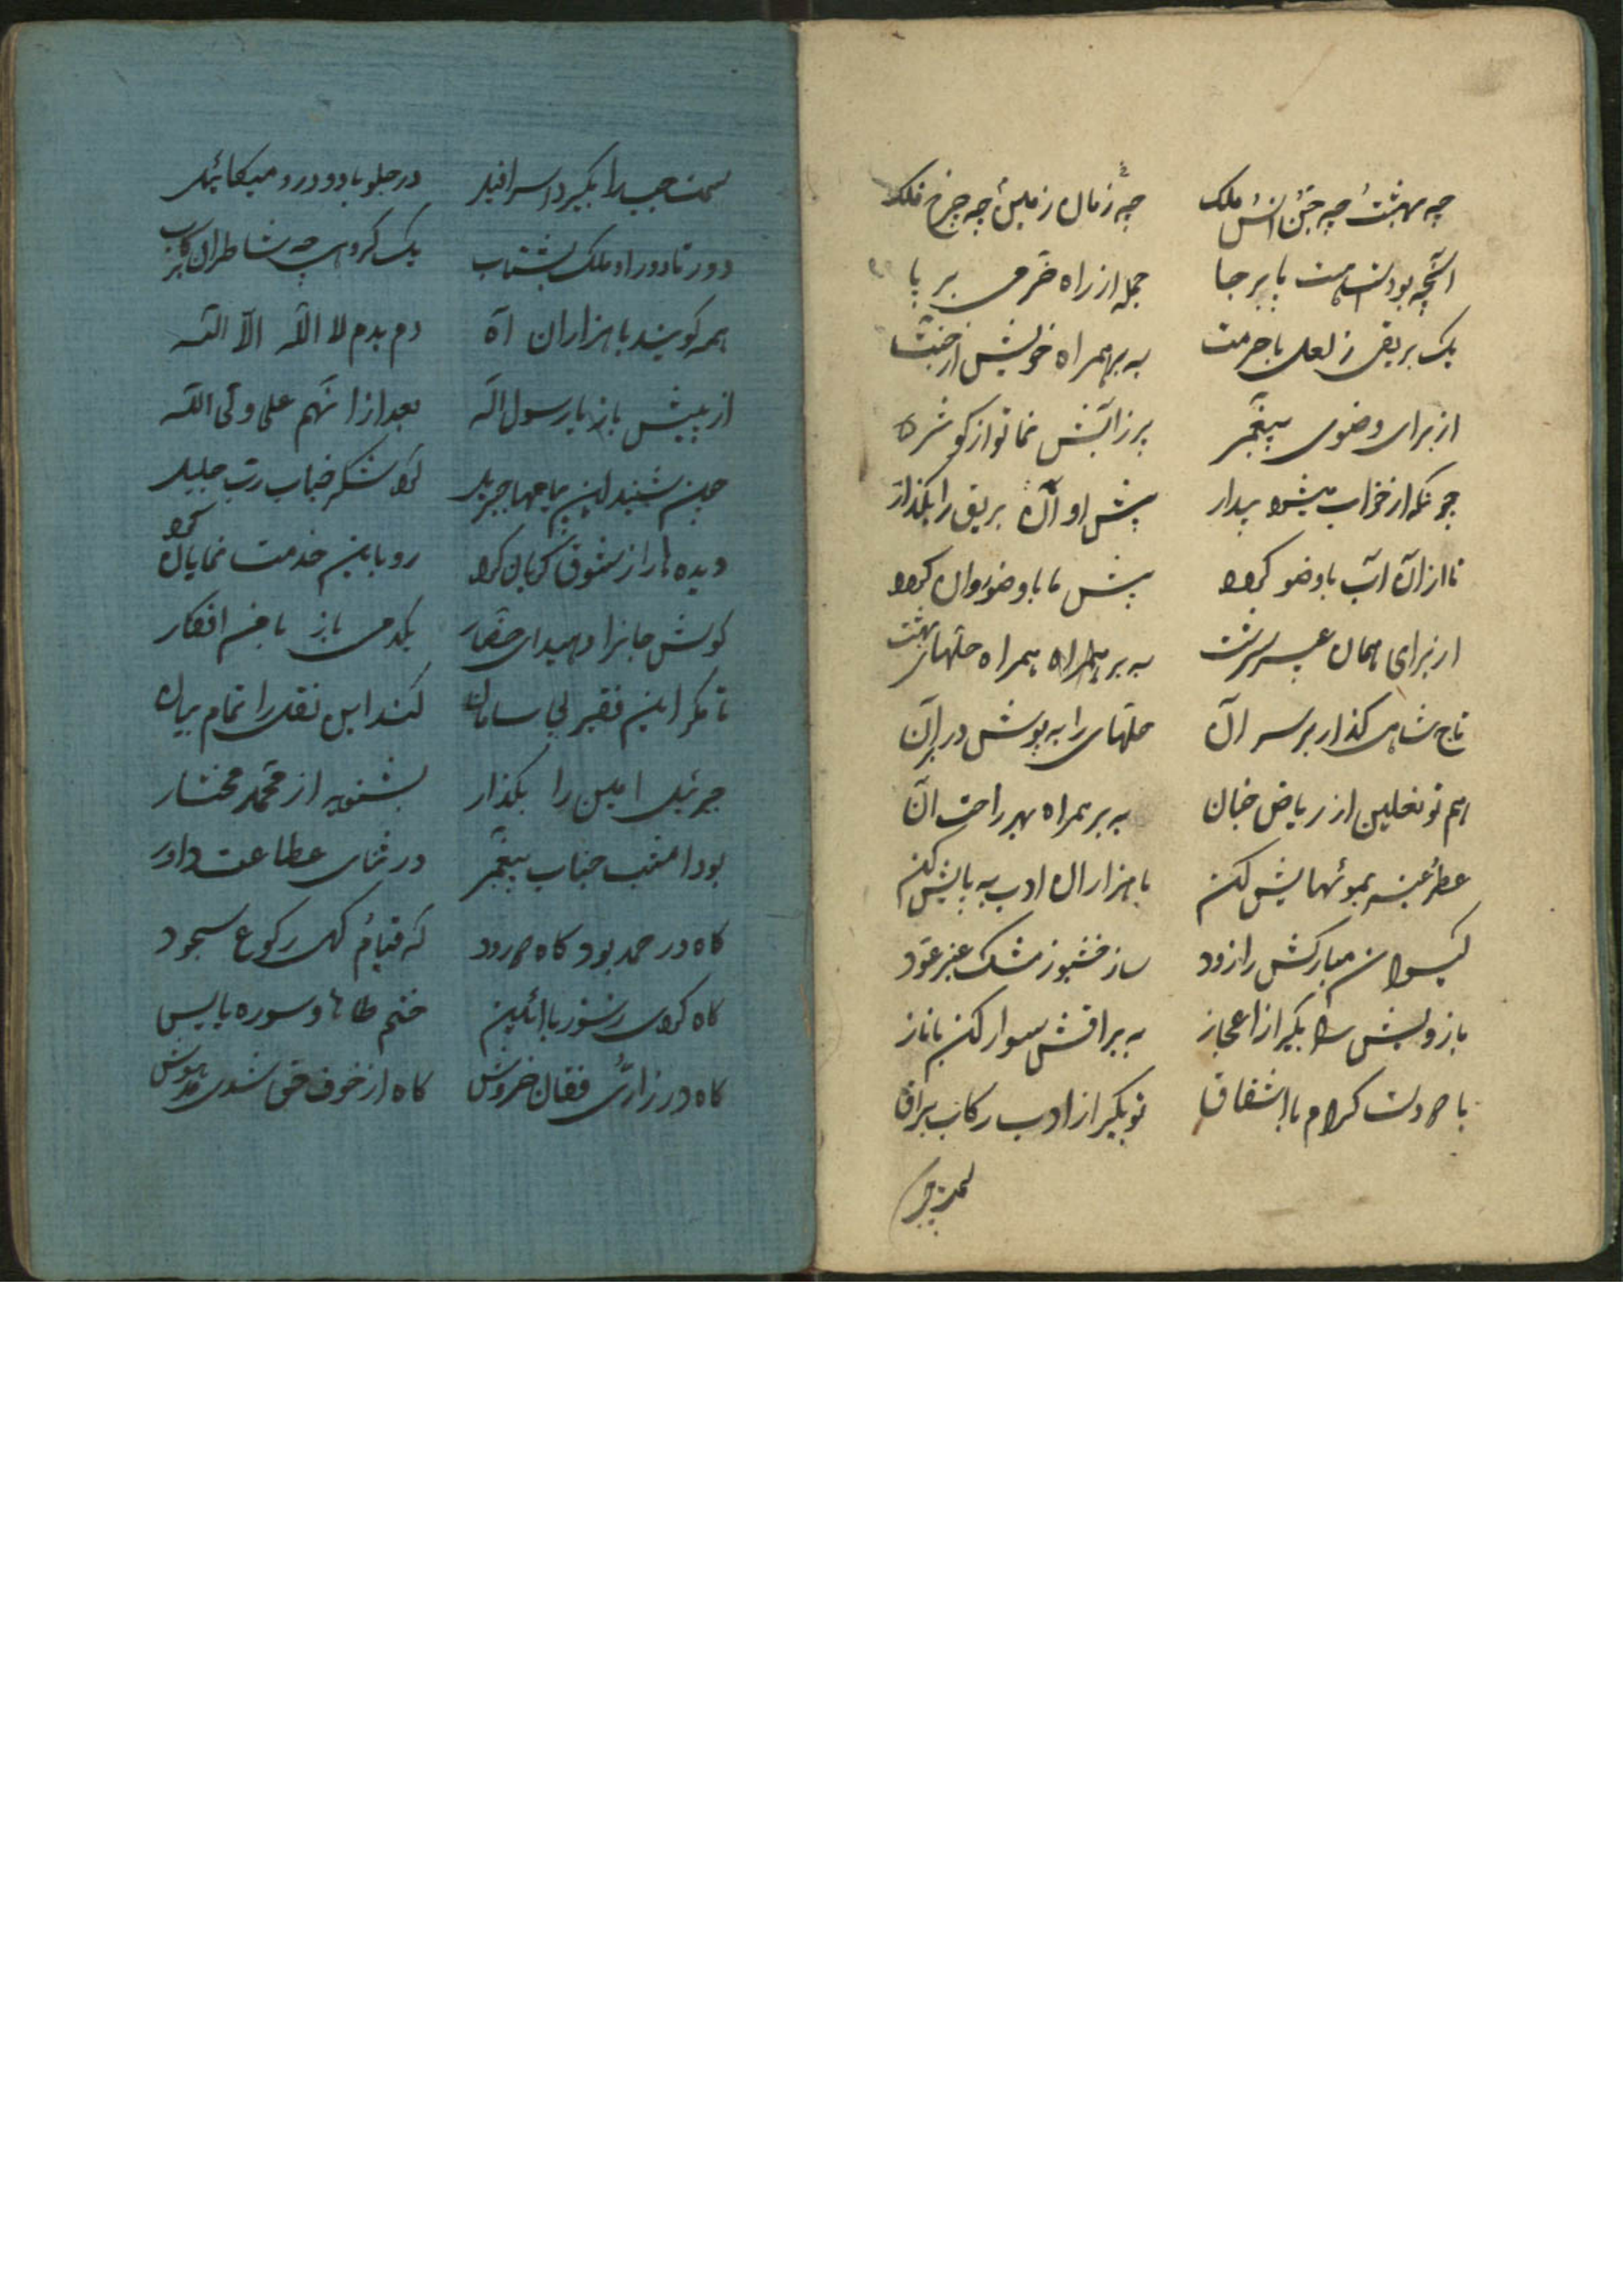 چه بهشت چه جن انس ملک چه زمان زمین چه چرخ فلک
آنچه بود است هست پا برجا جمله از راه خرمی بر پا
یک بریقی ز لعل با حرمت به بر همراه خویش از جنت
از برای وضوی پیغمبر پر ز آبش نما تو از کوثر
چونکه از خواب میشود بیدار پیش او آن بریق را بگذار
تا از آن آب با وضو گردد پیش ما با وضو روان گردد
از برای همان به بر همراه حلهای بهشت
تاج شاهی گذار بر سر آن حلهای را به پوش در بر آن
هم تو نعلین از ریاض جنان به بر همراه بهر راحت آن
عطر عنبر بموئهایش کن با هزاران ادب به پایش کن
گیسوان مبارکش را زود ساز خشبو ز مشک عنبر عود
بازویش را بگیر از اعجاز به براقش سوار کن با ناز
با دو دست کرام با اشفاق تو بگیر از ادب رکاب براق
سمت چپ
سمت چپ را بگیرد اسرافیل در جلو بادو دررو میکائیل
دور تا دور او ملک بشتاب یک گروهی چه شاطران
همه گویند با هزاران آه دم بدم لا اله الا الله
از پیش باز یا رسول اله بعد از انهم علی ولی الله
چون شنید این پیامها جبریل کرد شکر جناب رب جلیل
دیده ها را ز شوق گریان کرد رو باین خدمت نمایان کرد
گوش جانرا دهید ای حضار یکدمی باز با من افکار
تا مگر این فقیر بی سامان کند این نقل را تمام بیان
جبرئیل امین را بگذار بشنوید از محمد مختار
بود امشب جناب پیغمبر در ثنای عطاعت داور
گاه در حمد بود گاه درود گه قیام گهی رکوع سجود
گاه کردی ز شور با ائین ختم طاها و سوره یاسین
گاه در زاری فغان خروش گاه از خوف حق شدی مدهوش